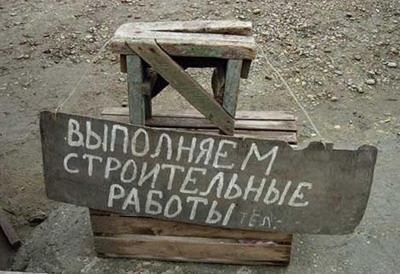 ВЫПОЛНЯЕМ
СТРОИТЕЛЬНЫЕ
РАБОТЫ ТЕЛ.-